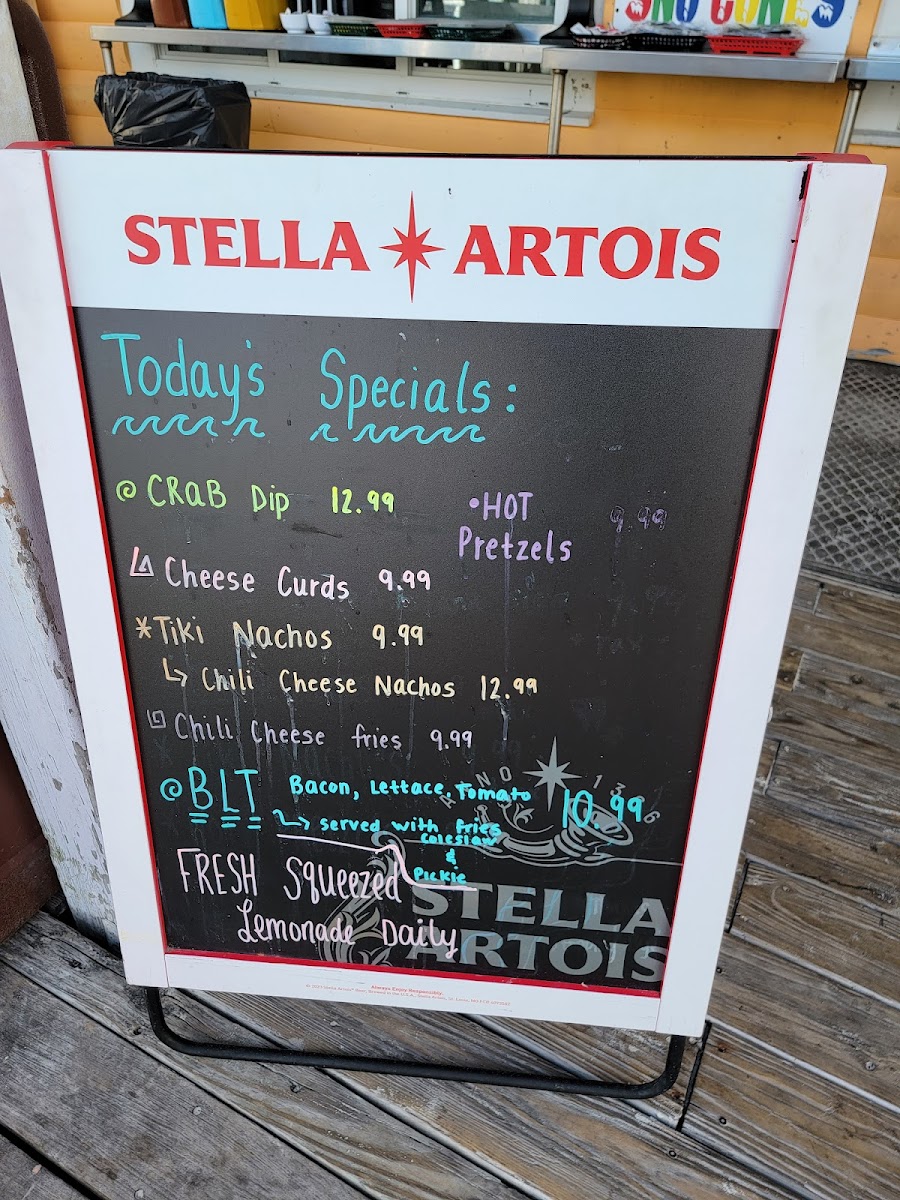 SNO CONES
STELLA ARTOIS
Today's Specials:
CRaB Dip 12.99
•HOT
Pretzels 9.99
Cheese Curds 9.99
*Tiki Nachos 9.99
Chili Cheese Nachos 12.99
Chili Cheese fries 9.99
BLT Bacon, Lettace, Tomato 10.99
served with fries
Coleslaw
&
Pickle
FRESH Squeezed
Lemonade Daily
ANNO 1366
STELLA
ARTOIS
Always Enjoy Responsibly.